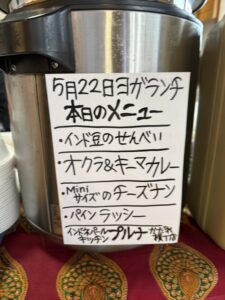 5月22日ヨガランチ
本日のメニュー
・インド豆のせんべい
・オクラ&キーマカレー
・Mini サイズ のチーズナン
・パイン ラッシー
インドネパール キッチン プルナ